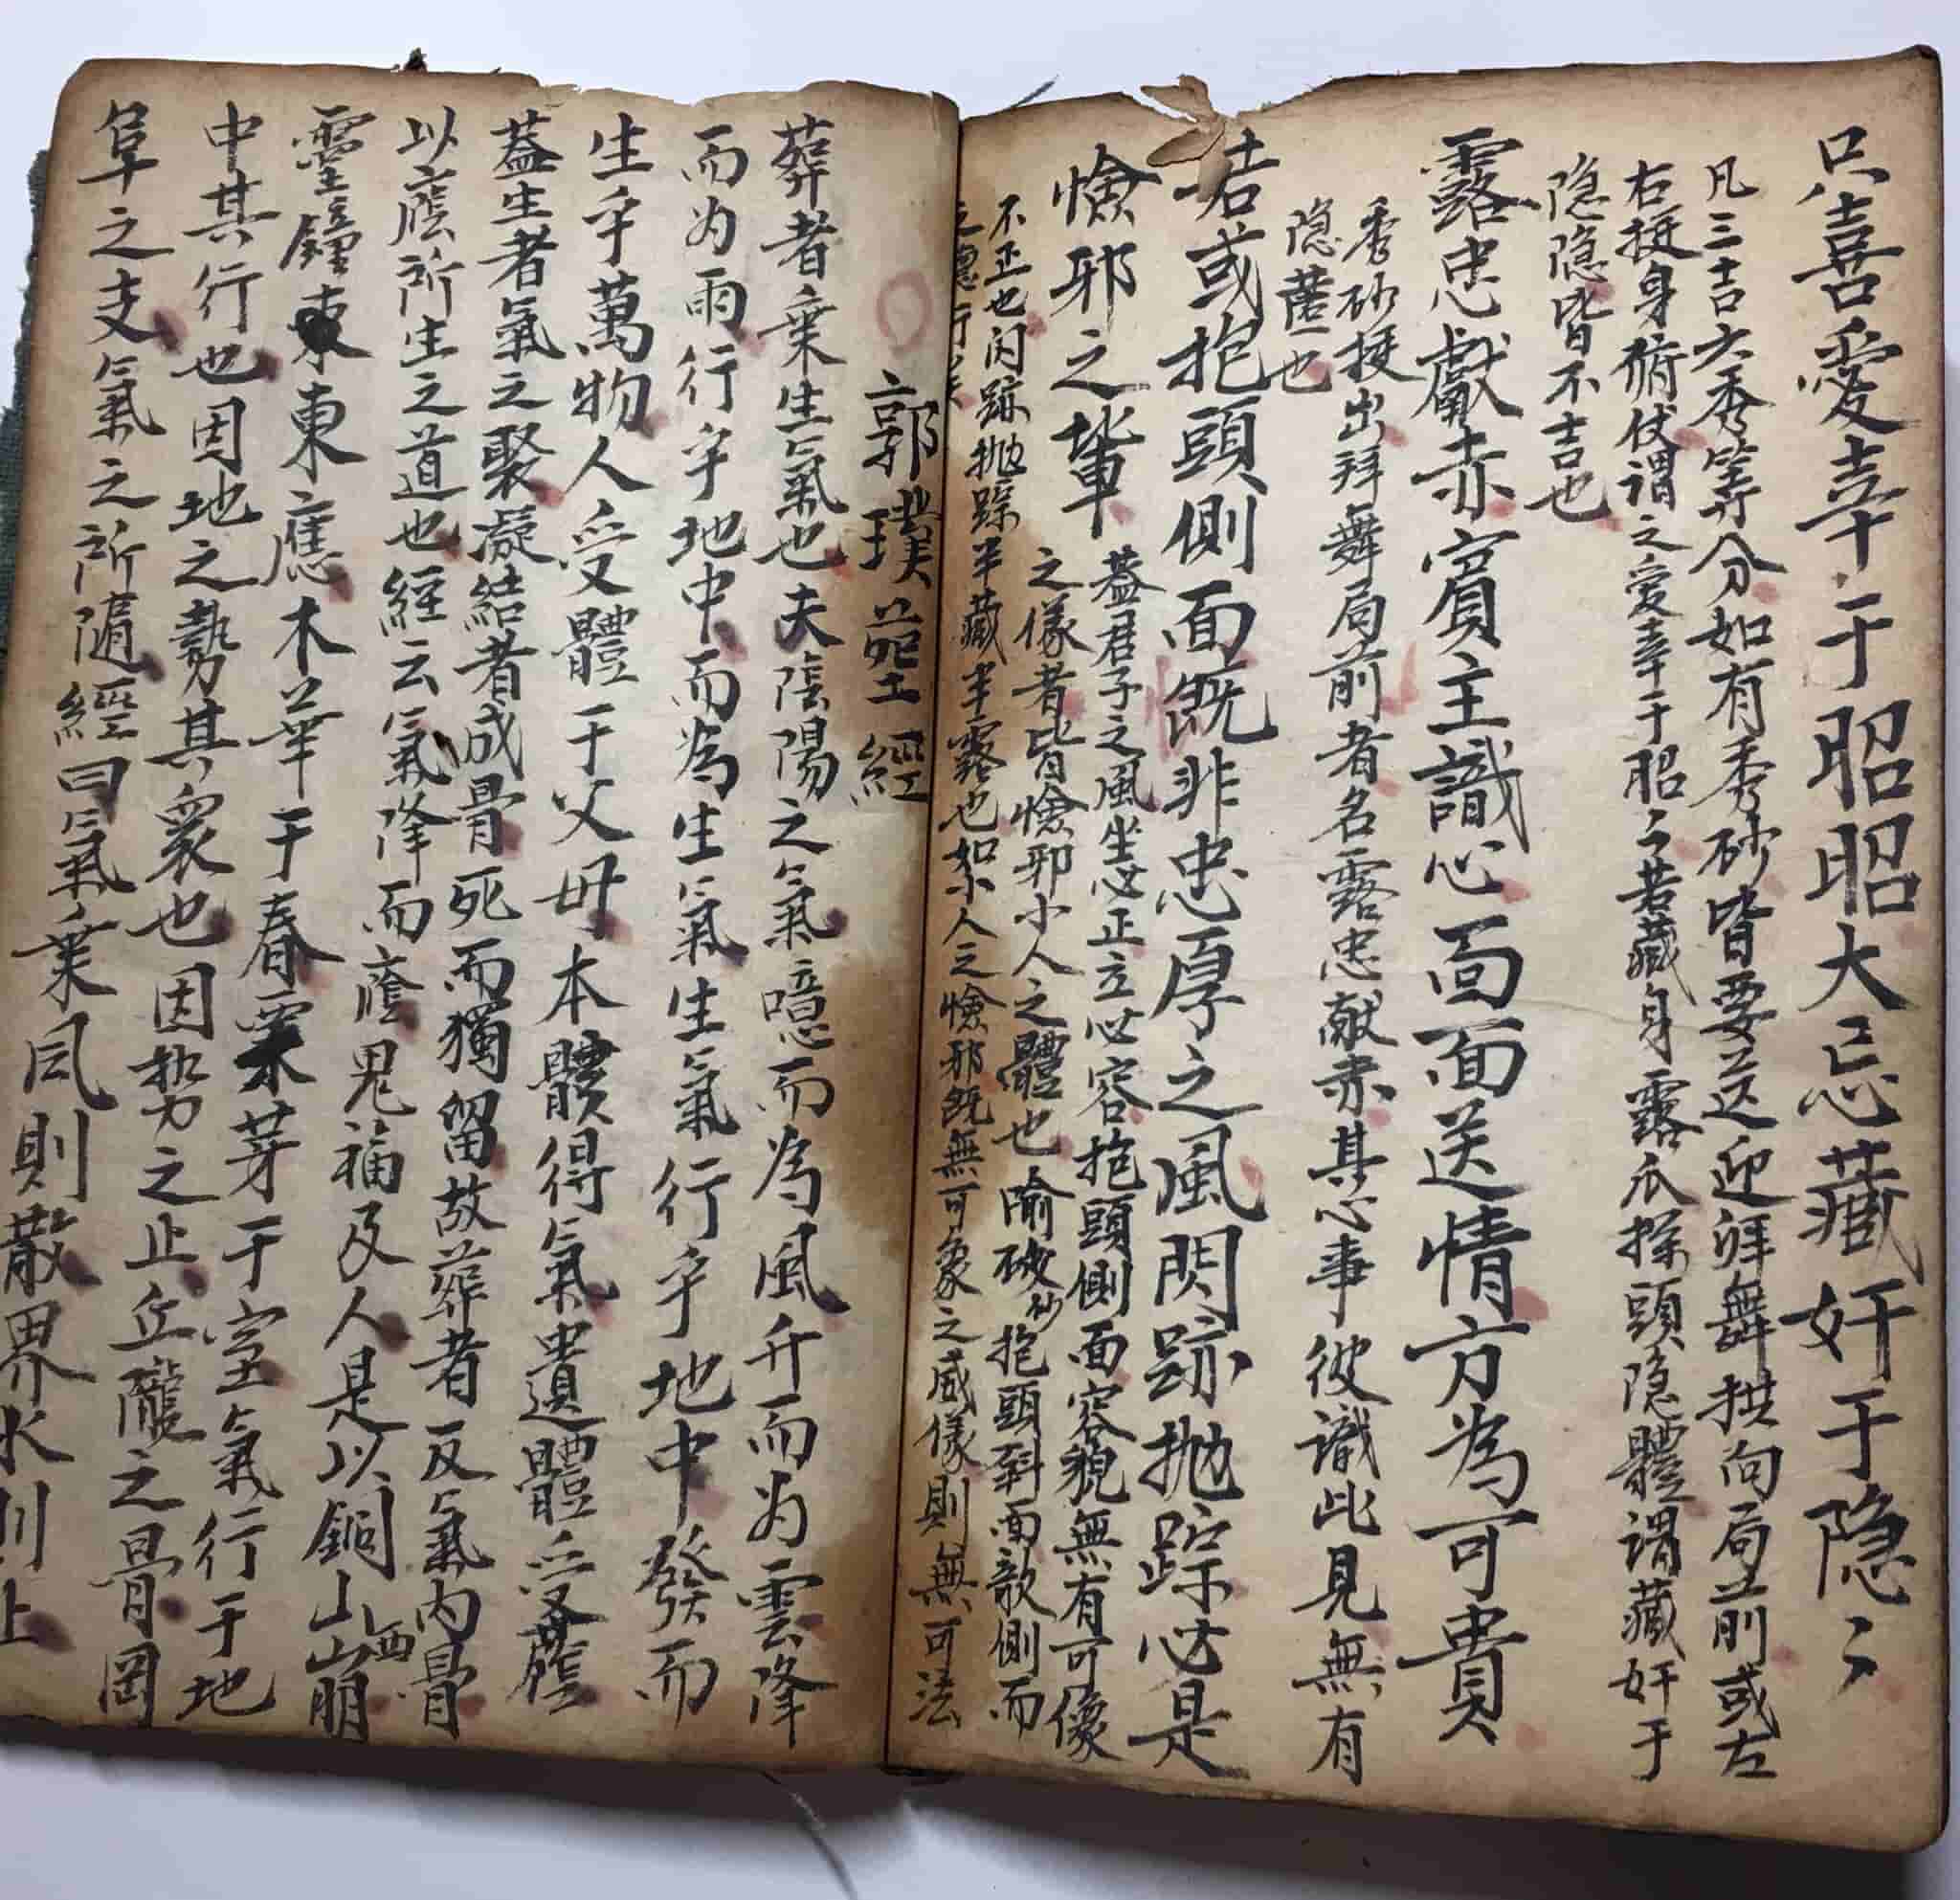 只喜愛幸于昭昭大忌藏奸于隐〻
凡三吉六秀等分如有秀砂皆要送迎拜舞拱向局前或左
右挺身俯伏謂之爱幸于昭〻若藏身露爪探頭隐體謂藏奸于
隐隐皆不吉也
露忠獻赤賓主識心面面送情方為可貴
秀砂挺出拜舞局前者名露忠献赤其心事彼識此見無有
隐蔽也
若或抱頭側面既非忠厚之風閃跡抛踪必是
憸邪之輩
葢君子之風坐必正立必容抱頭側面容貌無有可像
之儀者皆憸邪小人之體也喻破砂抱頭斜面歆側而
不正也闪跡抛踪半藏半露也如小人之憸邪既無可象之威儀則無可法
之德行矣
郭璞葬經
葬者乗生氣也夫陰陽之氣噫而為風升而为雲降
而为雨行乎地中而為生氣生氣行乎地中發而
生乎萬物人受體于父母本骸得氣遺體受蔭
葢生者氣之聚凝結者成骨死而獨留故葬者反氣内骨
以廕所生之道也經云氣降而廕鬼福及人是以銅山西崩
靈鐘東應木華于春栗芽于室氣行于地
中其行也因地之勢其聚也因势之止丘隴之骨岡
阜之支氣之所隨經曰氣乗风則散界水則止